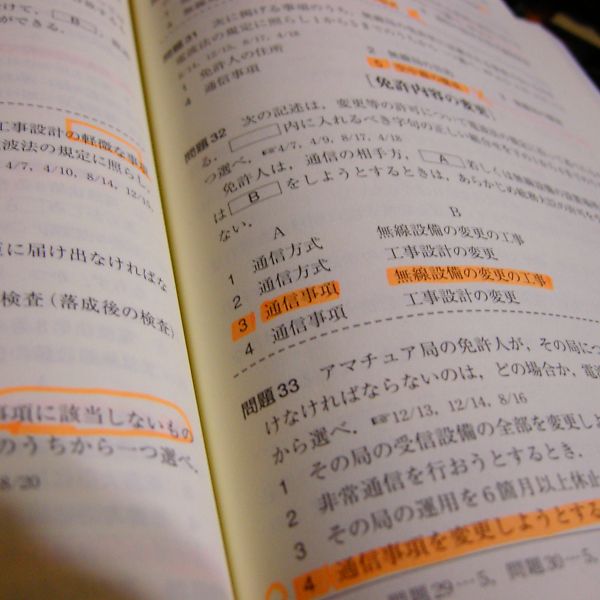 けて, B
ができる.
工事設計の軽微な事
波法の規定に照らし,
4/7, 4/10, 8/14, 12/15,
に届け出なければな
検査（落成後の検査）
事項に該当しないもの
のうちから一つ選べ.
8/20
問題31 次に掲げる事項のうち,
電波法の規定に照らし1から5までのうちから
1 免許人の住所
4 通信事項
2
5
［免許内容の変更］
問題32 次の記述は, 変更等の許可について
る. 内に入れるべき字句の正しい組合せを
つ選べ. ☞4/7, 4/9, 8/17, 4/18
免許人は, 通信の相手方, A 若しくは
は B をしようとするときは, あらかじめ
ない.
A B
1 通信方式 無線設備の変更の工事
2 通信方式 工事設計の変更
3 通信事項 無線設備の変更の工事
4 通信事項 工事設計の変更
問題33 アマチュア局の免許人が, その局に
けなければならないのは, どの場合か, 電波
から選べ. ☞12/13, 12/14, 8/16
1 その局の受信設備の全部を変更しよ
2 非常通信を行おうとするとき.
3 その局の運用を6箇月以上休止
4 通信事項を変更しようとする
問題29…5, 問題30…5,